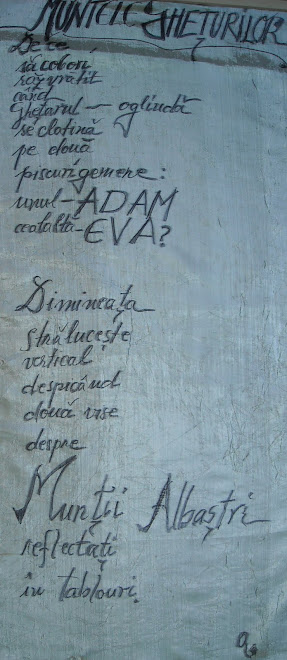 MUNTELE GHEȚURILOR
De ce
să cobori
răzvrătit
când
ghețarul - oglindă
se clatină
pe două
piscuri gemene:
unul - ADAM
cealaltă - EVA?
Dimineața
strălucește
vertical
despicând
două vise
despre
Munții Albaștri
reflectați
în tablouri